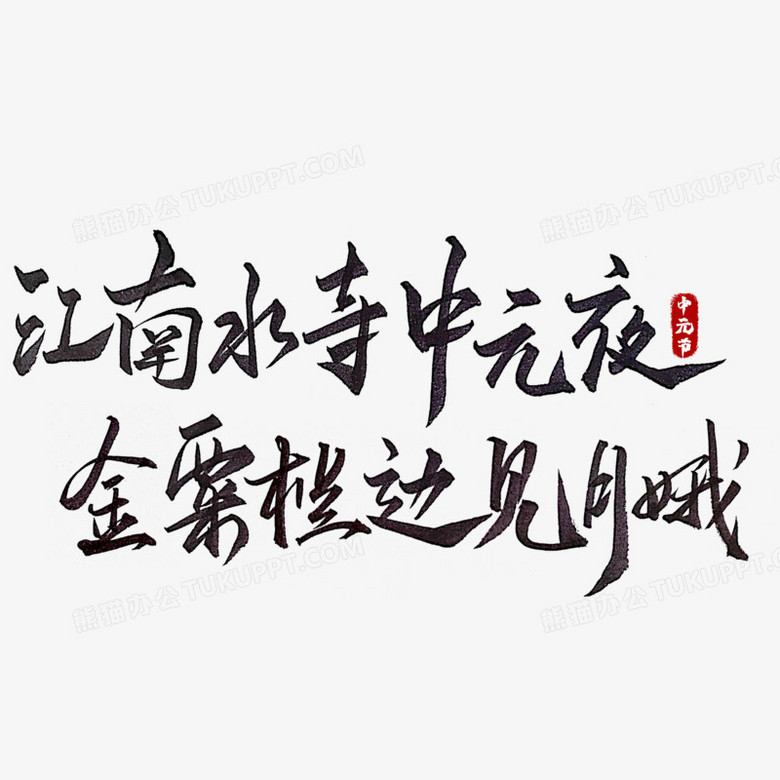 熊猫办公 TUKUPPT.COM
熊猫办公 TUKUPPT.COM
江南水寺中元夜
中元节
金粟栏边见月娥
熊猫办公 TUKUPPT.COM
熊猫办公 TUKUPPT.COM